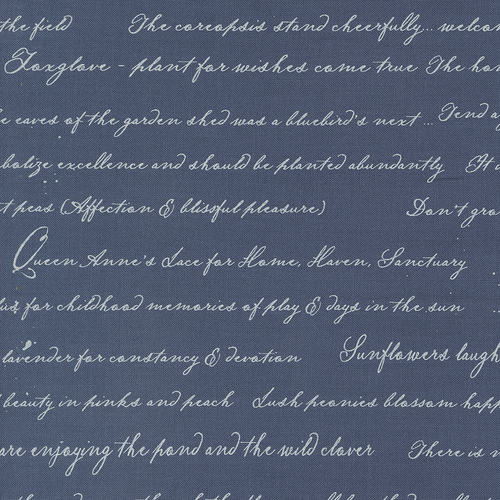 the field The coreopsis stand cheerfully... welcom
Foxglove - plant for wishes come true The hon
e eaves of the garden shed was a bluebird's nest ... Tend a
bolize excellence and should be planted abundantly It i
t peas (Affection & blissful pleasure) Don't gro
Queen Anne's Lace for Home, Haven, Sanctuary
for childhood memories of play & days in the sun ..
lavender for constancy & devotion Sunflowers laugh
beauty in pinks and peach Lush peonies blossom happ
are enjoying the pond and the wild clover There is n